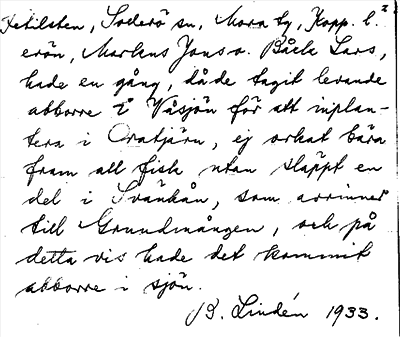 Ketilsten, Soderö sn, Mora tg, Kopp. l. 2
erön, Markens Jons o. Båck Lars,
hade en gång, då de tagit levande
abborre i Våsjön för att inplan-
tera i Oratjärn, ej orkat bära
fram all fisk utan släppt en
del i Svänkån, som avrinner
till Grundmången, och på
detta vis hade det kommit
abborre i sjön.
B. Lindén 1933.